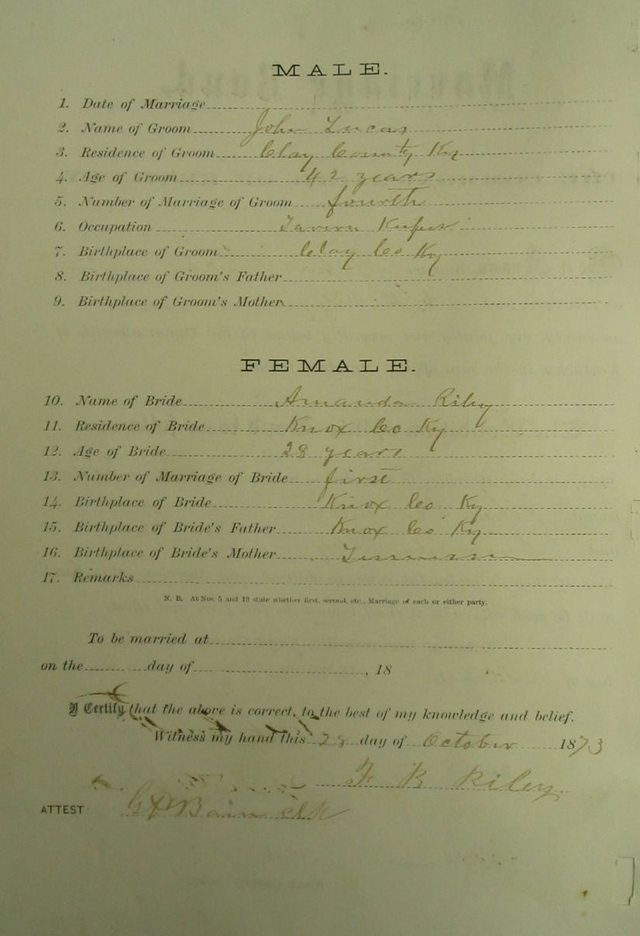 MALE.
1. Date of Marriage
2. Name of Groom John Lucas
3. Residence of Groom Clay County Ky
4. Age of Groom 42 years
5. Number of Marriage of Groom fourth
6. Occupation Tavern Keeper
7. Birthplace of Groom Clay Co Ky
8. Birthplace of Groom's Father
9. Birthplace of Groom's Mother
FEMALE.
10. Name of Bride Amanda Riley
11. Residence of Bride Knox Co Ky
12. Age of Bride 28 years
13. Number of Marriage of Bride first
14. Birthplace of Bride Knox Co Ky
15. Birthplace of Bride's Father Knox Co Ky
16. Birthplace of Bride's Mother
17. Remarks
N. B. At Nos. 5 and 13 state whether first, second, etc., Marriage of each or either party.
To be married at
on the day of , 18
I Certify that the above is correct, to the best of my knowledge and belief.
Witness my hand this 28 day of October 1873
F B Riley
ATTEST clk